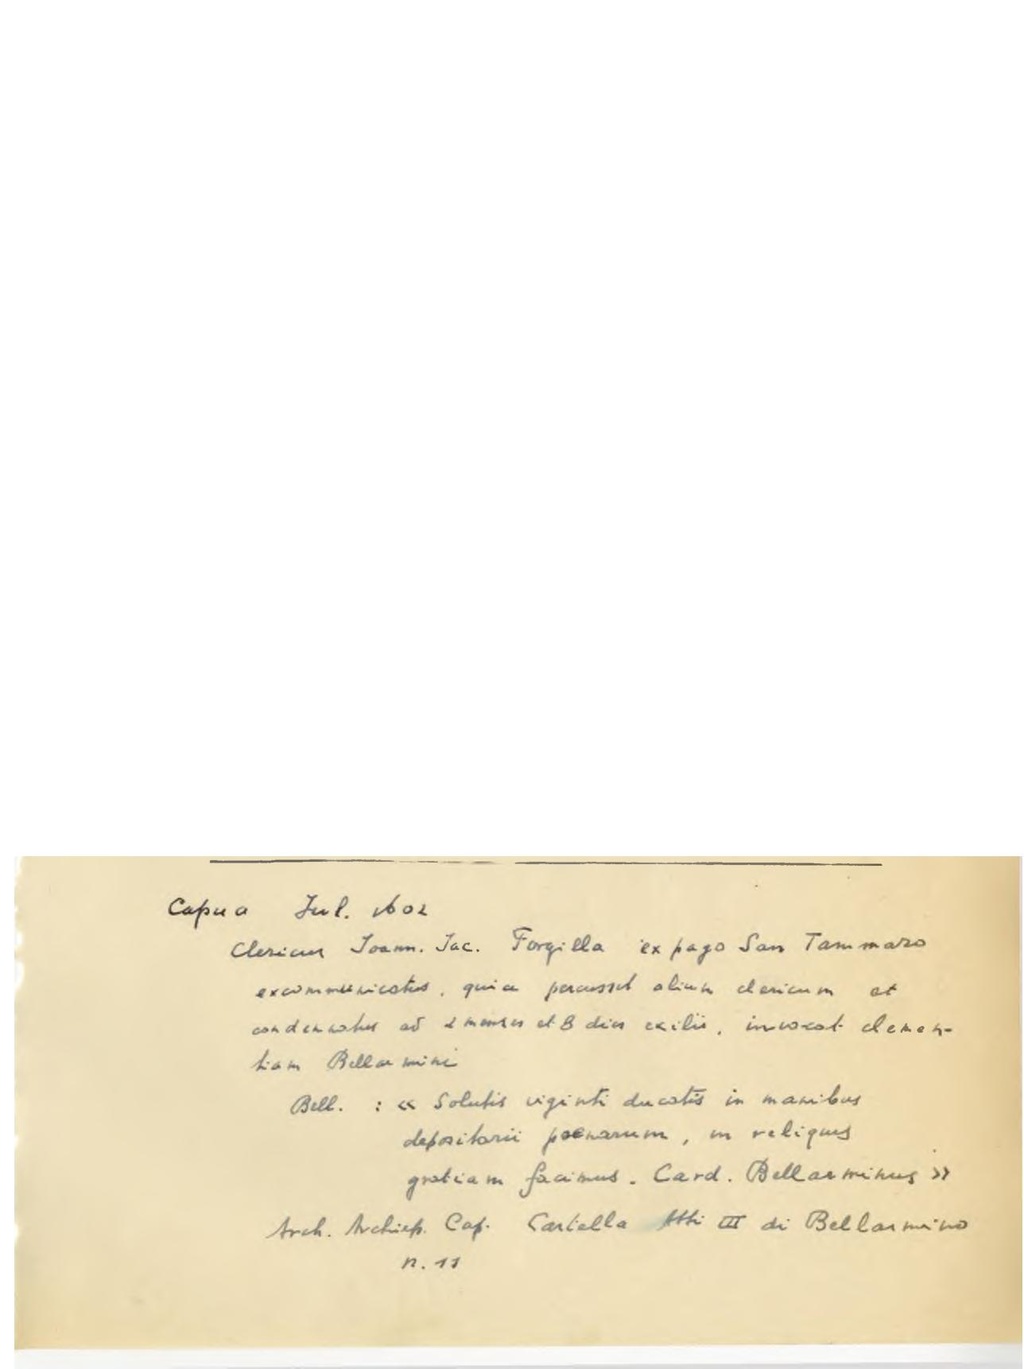 Capua Jul. 1602
Clericus Joann. Jac. Forgilla ex pago San Tammaro
excommunicatus, quia percussit alium clericum et
condemnatus ad 2 menses et 8 dies exilii, invocat clemen-
tiam Bellarmini
Bell. : « Solutis viginti ducatis in manibus
depositarii poenarum, in reliquis
gratiam facimus. Card. Bellarminus »
Arch. Archiep. Cap. Cartella Atti III di Bellarmino
n. 11